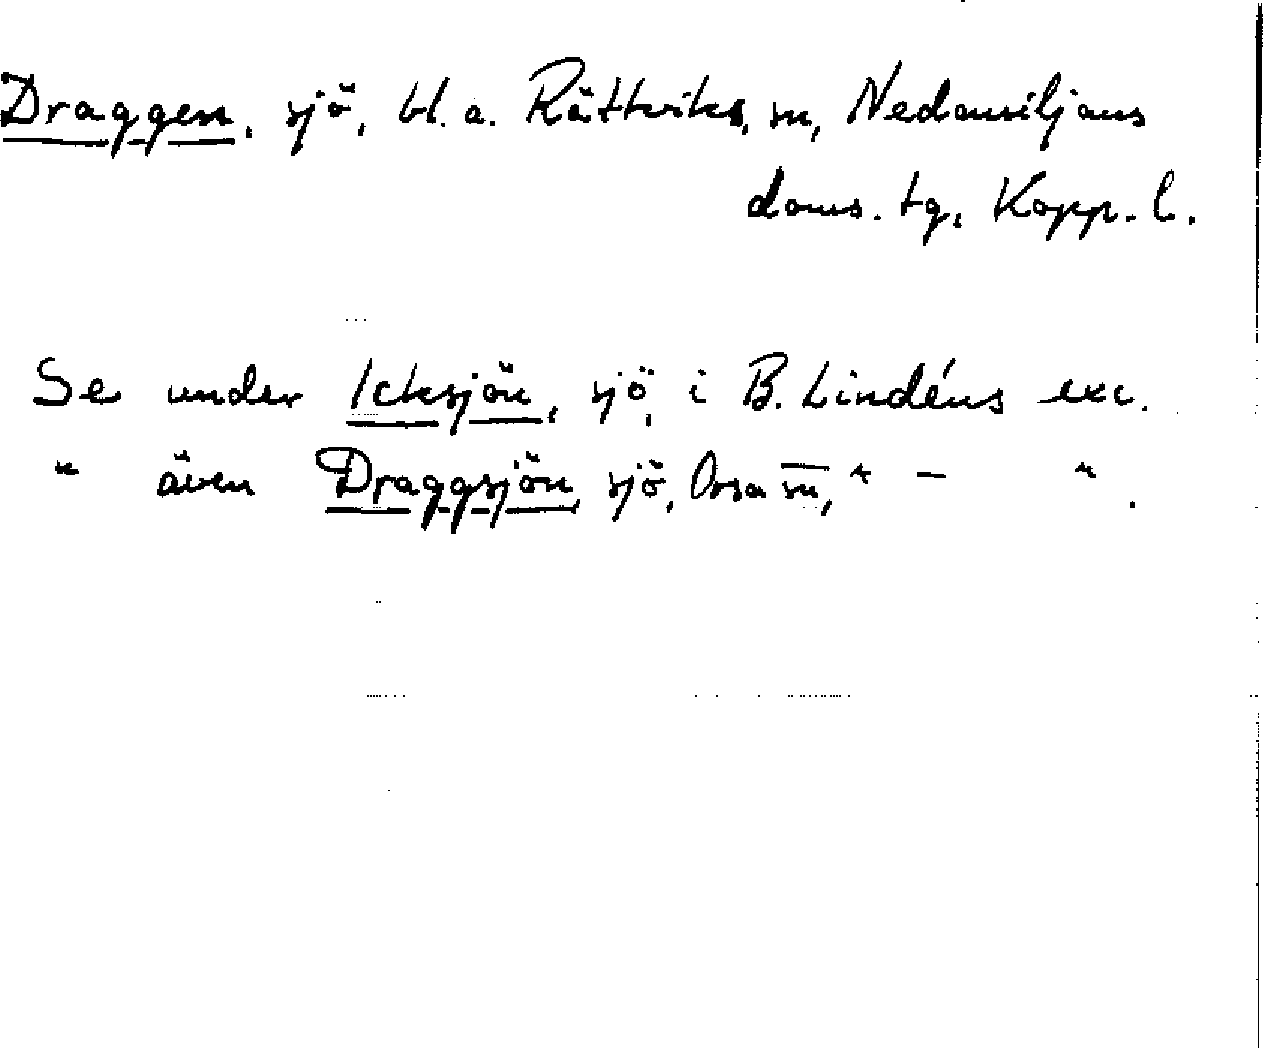 Draggen, sjö, bl. a. Rättviks, sn, Nedansiljans
doms. tg, Kopp. l.
Se under Icksjön, sjö, i B. Lindéns exc.
" även Draggsjön, sjö, Orsa sn, " — " .